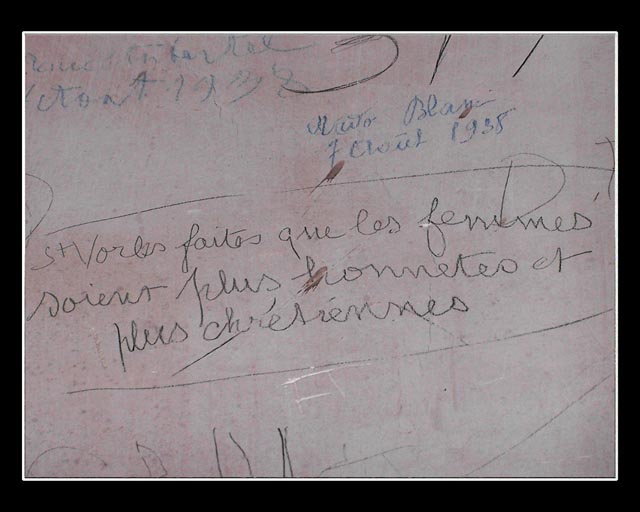 Août
Blanc
7 Août 1938
St Vorles faites que les femmes
soient plus honnetes et
plus chrétiennes